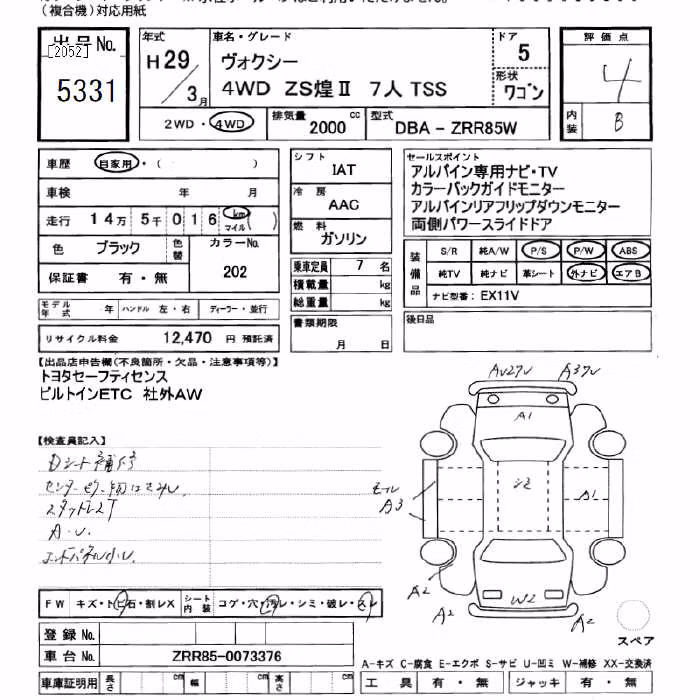 (複合機)対応用紙
出品No.
[2052]
5331
年式
H29/3月
車名・グレード
ヴォクシー
4WD ZS煌Ⅱ 7人TSS
ドア
5
形状
ワゴン
2WD・4WD
排気量
2000 cc
型式
DBA-ZRR85W
評価点
4
内装
B
車歴 自家用・( )
車検 年 月
走行 14万5千016 km マイル ( )
色 ブラック 色替 カラーNo.
202
保証書 有・無
モデル年式 年 ハンドル 左・右 ディーラー・並行
リサイクル料金 12,470 円 預託済
シフト
IAT
冷房
AAC
燃料
ガソリン
乗車定員 7 名
積載量 kg
総重量 kg
書類期限
月 日
セールスポイント
アルパイン専用ナビ・TV
カラーバックガイドモニター
アルパインリアフリップダウンモニター
両側パワースライドドア
装備品
S/R 純A/W P/S P/W ABS
純TV 純ナビ 革シート 外ナビ エアB
ナビ型番: EX11V
後日品
【出品店申告欄(不良箇所・欠品・注意事項等)】
トヨタセーフティセンス
ビルトインETC 社外AW
【検査員記入】
Dシート補修
スタットレスT
A・U.
AU27U A37U
A1
シミ
モール
A3
A1
A2
W2
A2
A2
スペア
FW キズ・トビ石・割レX シート内装 コゲ・穴・汚レ・シミ・破レ・スレ
登録No.
車台No. ZRR85-0073376
車庫証明用 長さ cm 幅 cm 高さ cm
A-キズ C-腐食 E-エクボ S-サビ U-凹ミ W-補修 XX-交換済
工具 有・無 ジャッキ 有・無